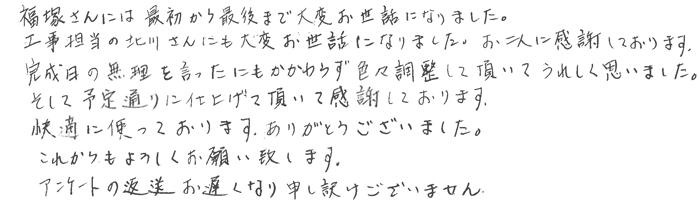 福塚さんには最初から最後まで大変お世話になりました。
工事担当の北川さんにも大変お世話になりました。お二人に感謝しております。
完成日の無理を言ったにもかかわらず色々調整して頂いてうれしく思いました。
そして予定通りに仕上げて頂いて感謝しております。
快適に使っております。ありがとうございました。
これからもよろしくお願い致します。
アンケートの返送お遅くなり申し訳けございません。